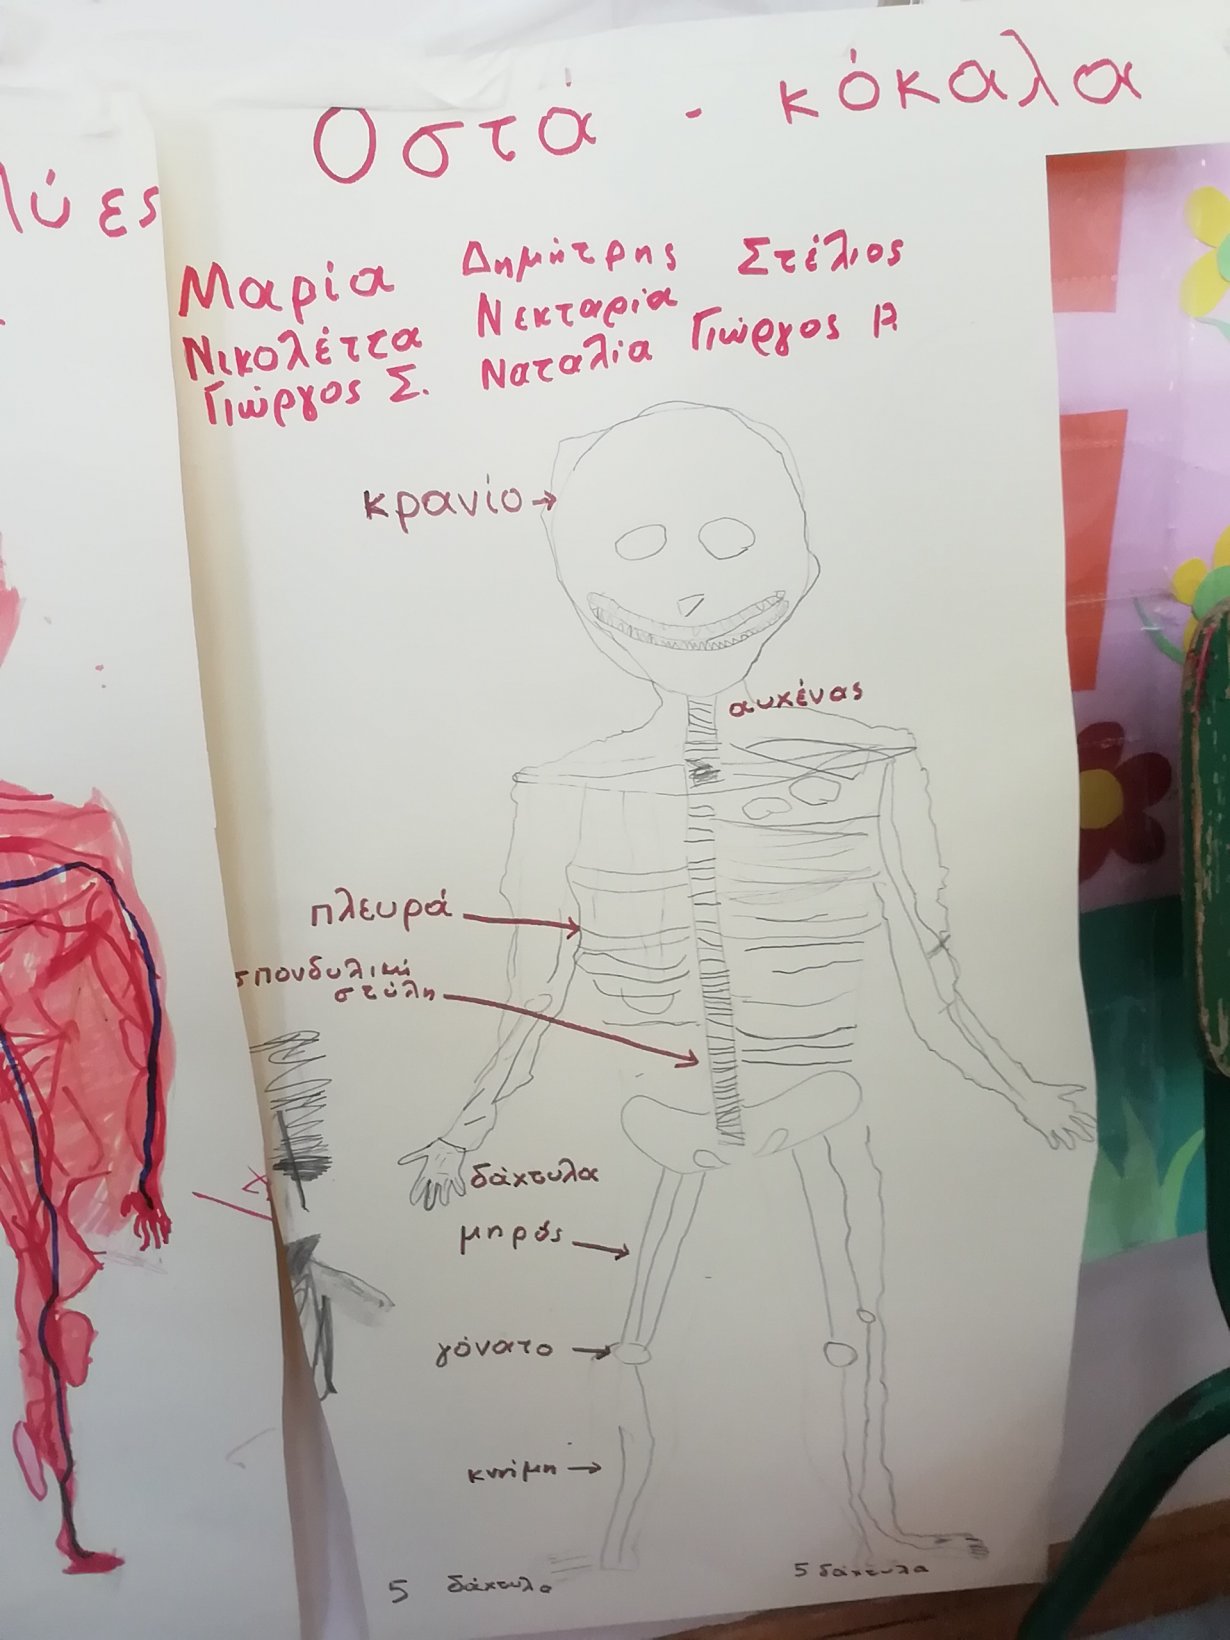 Οστά - κόκαλα
λύες
Μαρία Δημήτρης Στέλιος
Νικολέττα Νεκταρία
Γιώργος Σ. Ναταλία Γιώργος Α
κρανίο
αυχένας
πλευρά
σπονδυλική
στύλη
δάχτυλα
μηρός
γόνατο
κνήμη
5 δάχτυλα
5 δάχτυλα